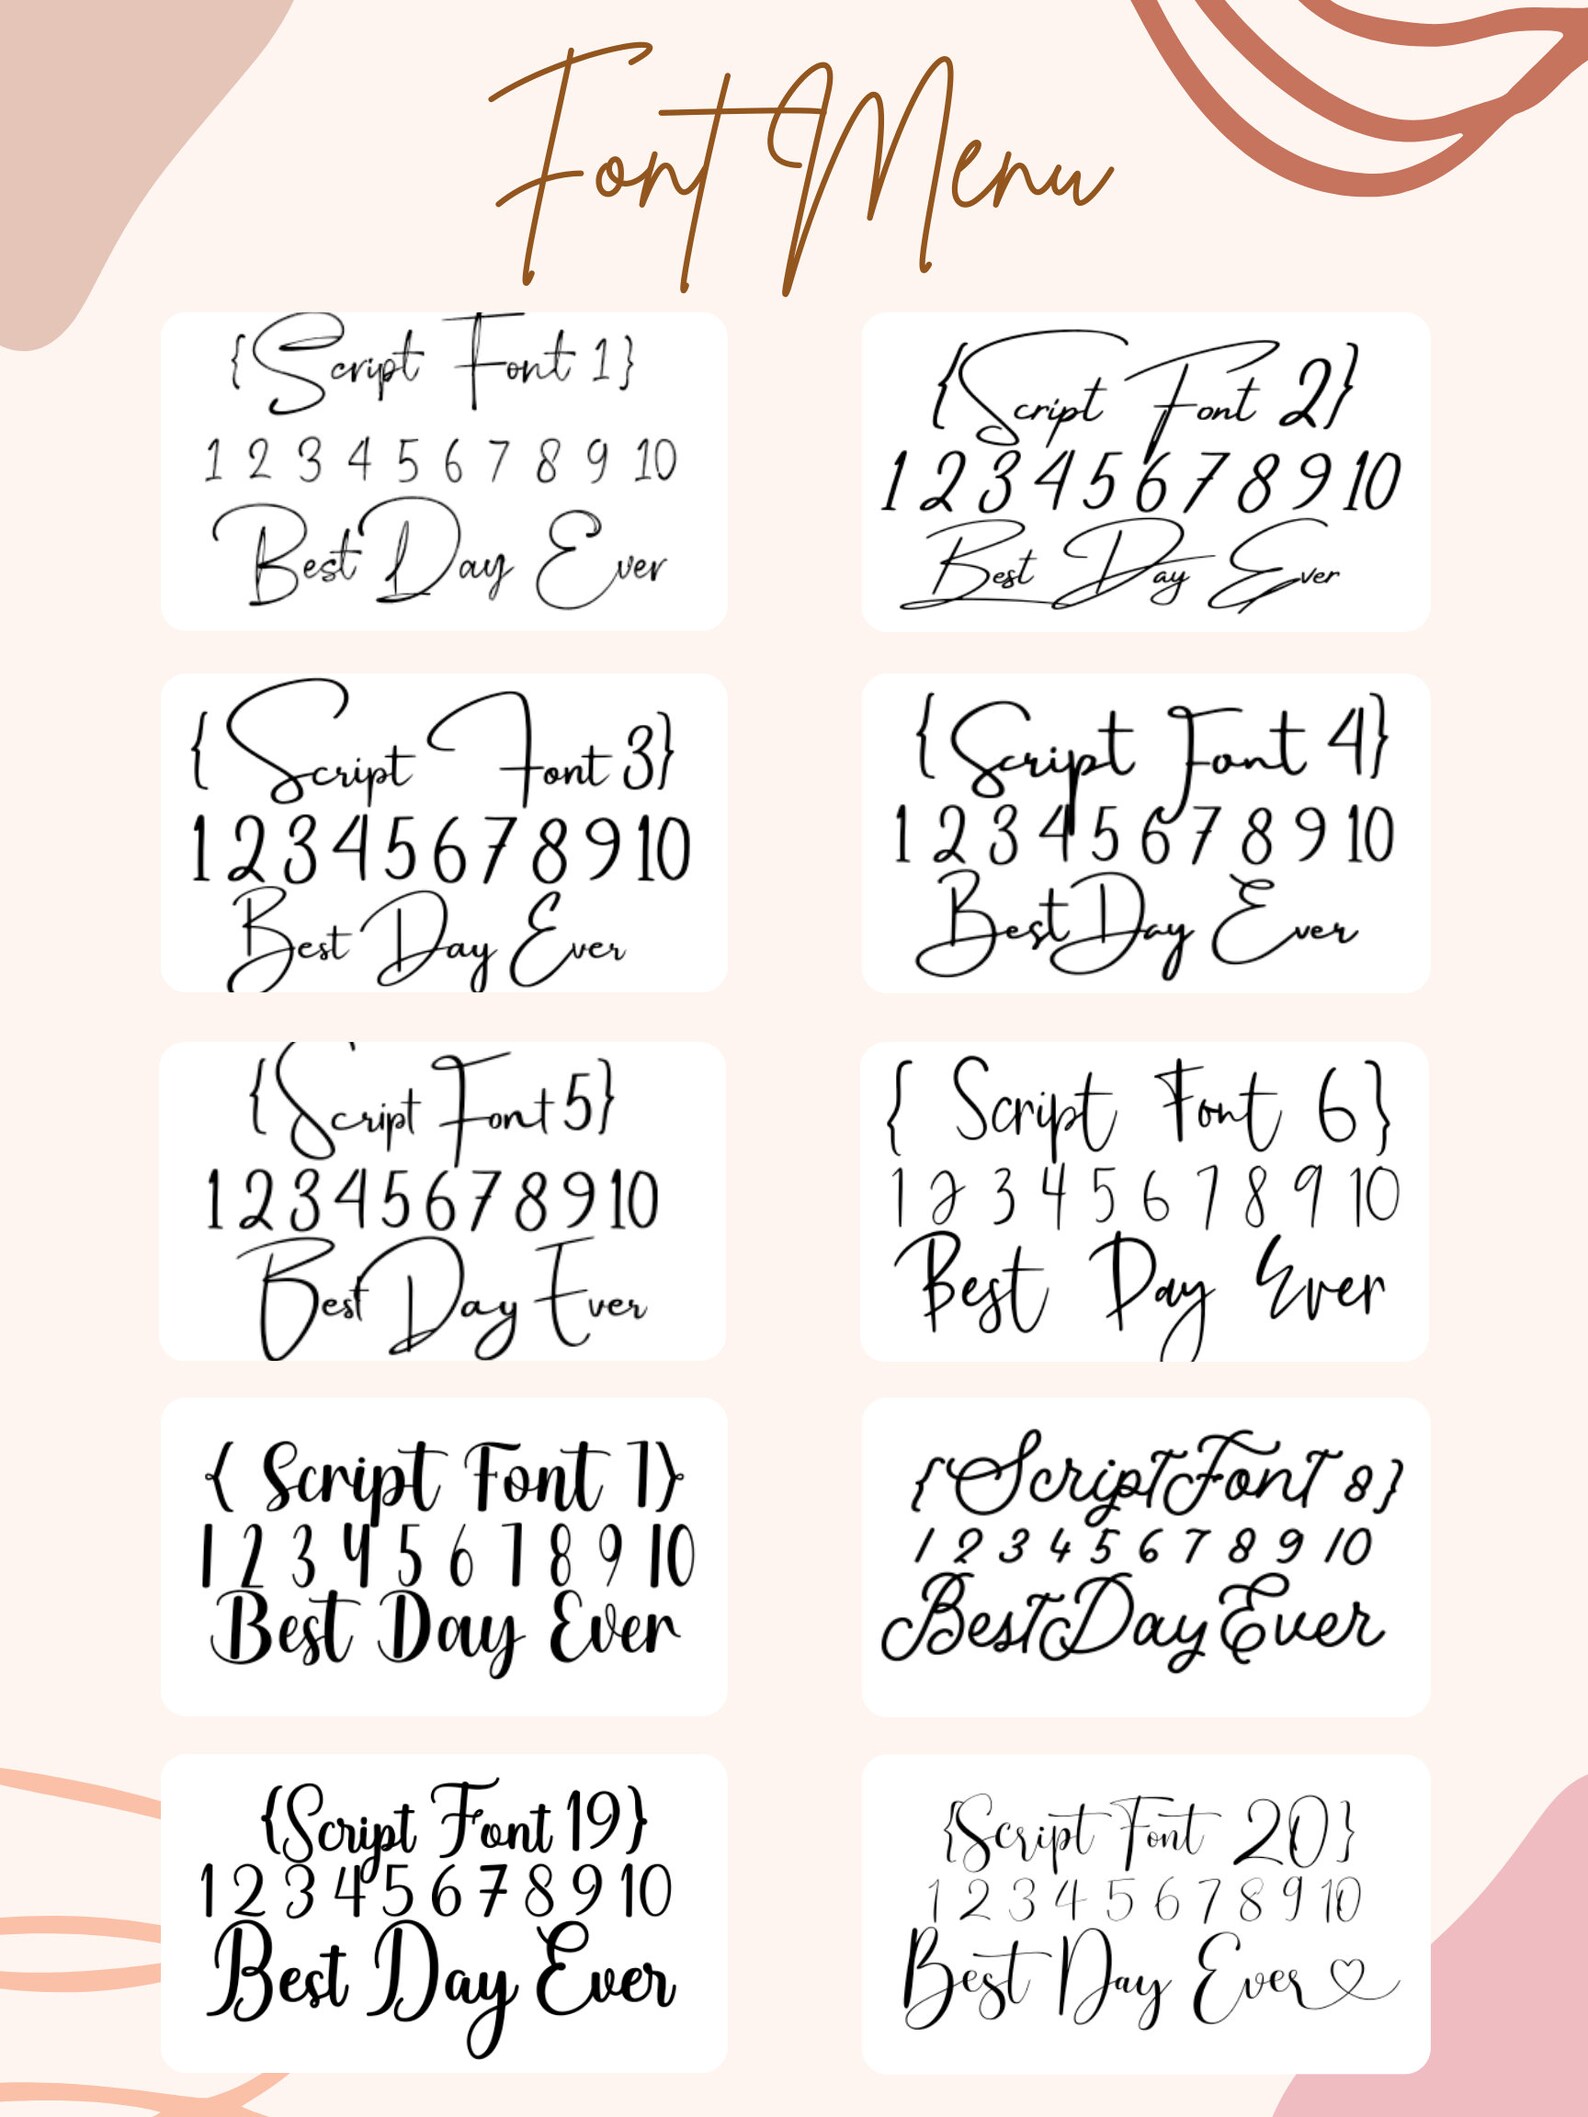 Font Menu
{Script Font 1}
1 2 3 4 5 6 7 8 9 10
Best Day Ever
{Script Font 2}
1 2 3 4 5 6 7 8 9 10
Best Day Ever
{Script Font 3}
1 2 3 4 5 6 7 8 9 10
Best Day Ever
{Script Font 4}
1 2 3 4 5 6 7 8 9 10
Best Day Ever
{Script Font 5}
1 2 3 4 5 6 7 8 9 10
Best Day Ever
{ Script Font 6}
1 2 3 4 5 6 7 8 9 10
Best Day Ever
{ Script Font 7}
1 2 3 4 5 6 7 8 9 10
Best Day Ever
{Script Font 8}
1 2 3 4 5 6 7 8 9 10
Best Day Ever
{Script Font 19}
1 2 3 4 5 6 7 8 9 10
Best Day Ever
{Script Font 20}
1 2 3 4 5 6 7 8 9 10
Best Day Ever